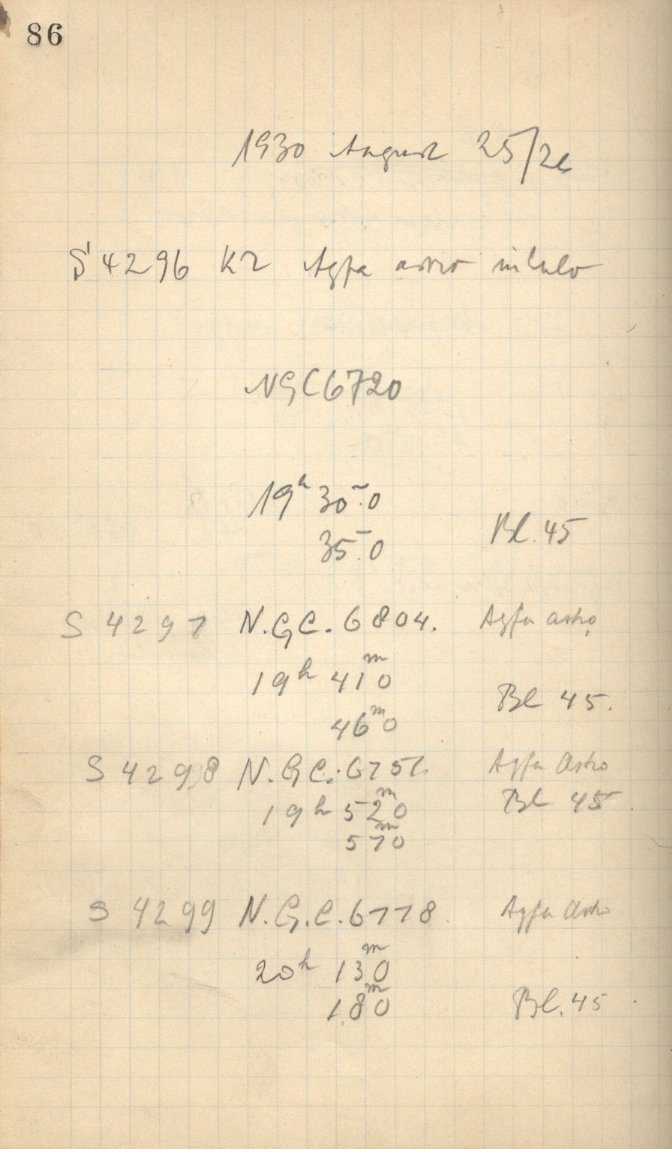 86
1930 August 25/26
S 4296 K2 Agfa astro
NGC 6720
19h 30m.0
35m.0 Bl. 45
S 4297 N.G.C. 6804. Agfa astro
19h 41m0
46m0 Bl 45.
S 4298 N.G.C. 6751 Agfa Astro
19h 52m0 Bl 45
57m0
S 4299 N.G.C. 6778. Agfa Astro
20h 13m0
18m0 Bl. 45